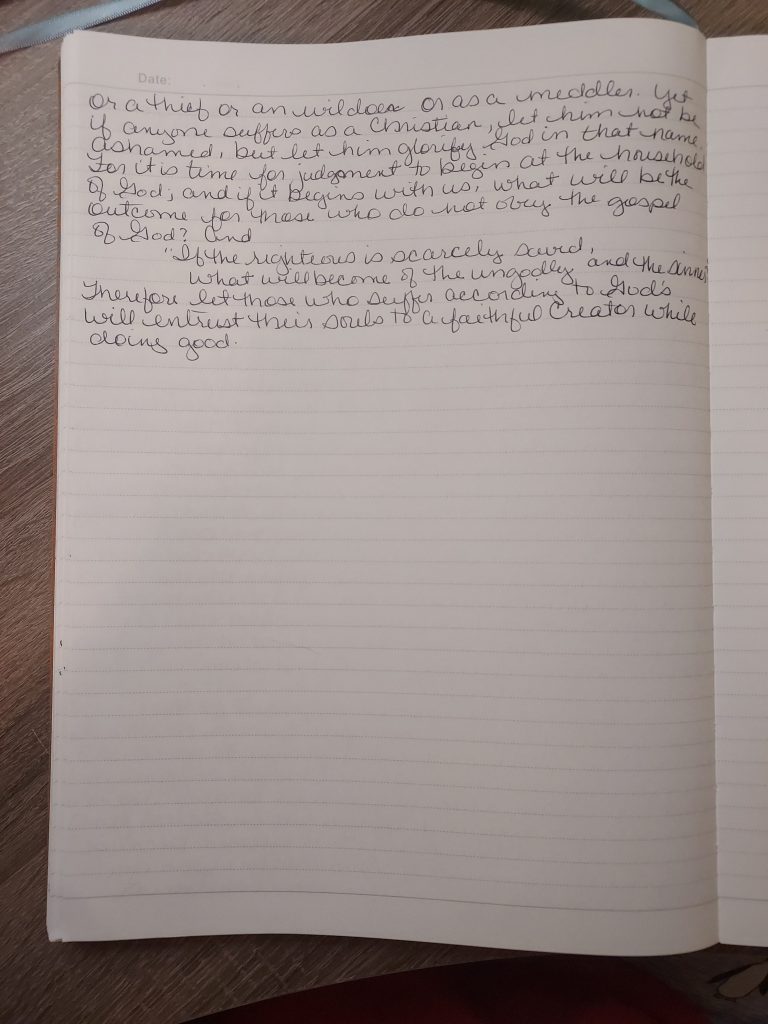 Date:
or a thief or an evildoer or as a meddler. Yet
if anyone suffers as a Christian, let him not be
ashamed, but let him glorify God in that name.
For it is time for judgment to begin at the household
of God; and if it begins with us, what will be the
outcome for those who do not obey the gospel
of God? And
"If the righteous is scarcely saved,
what will become of the ungodly and the sinner"
Therefore let those who suffer according to God's
will entrust their souls to a faithful Creator while
doing good.